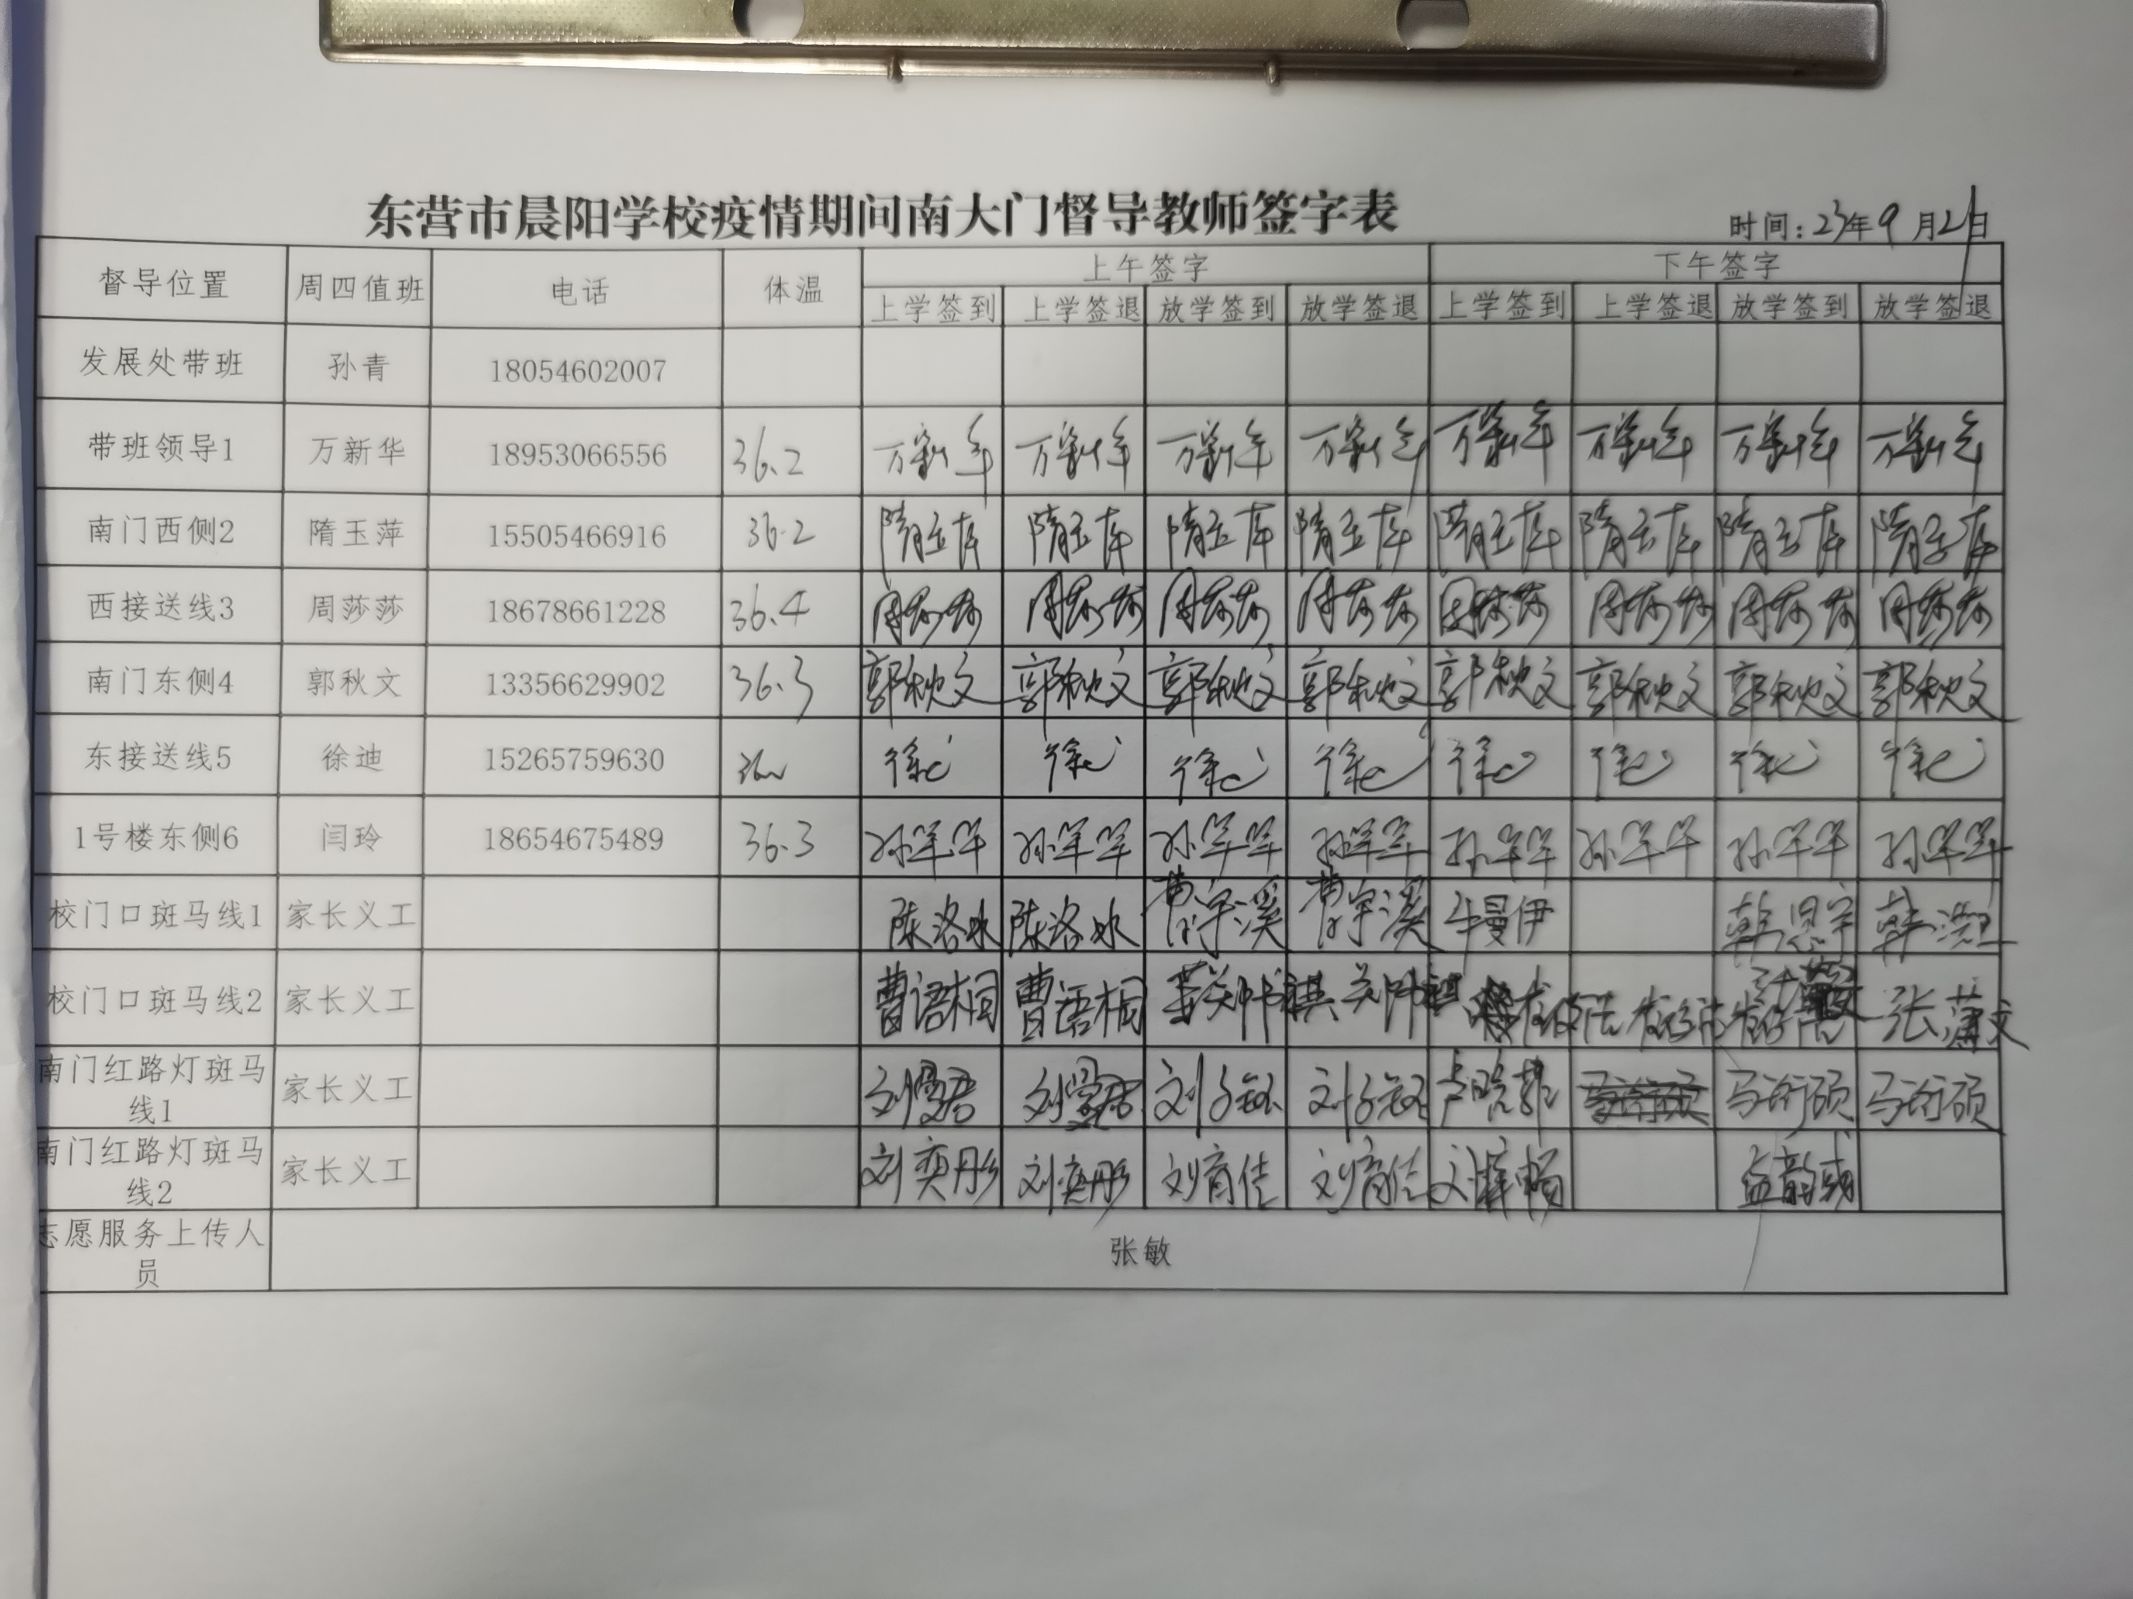 东营市晨阳学校疫情期间南大门督导教师签字表
时间：23年9月21日
督导位置 周四值班 电话 体温 上午签字 下午签字
上学签到 上学签退 放学签到 放学签退 上学签到 上学签退 放学签到 放学签退
发展处带班 孙青 18054602007
带班领导1 万新华 18953066556 36.2 万新华 万新华 万新华 万新华 万新华 万新华 万新华 万新华
南门西侧2 隋玉萍 15505466916 36.2 隋玉萍 隋玉萍 隋玉萍 隋玉萍 隋玉萍 隋玉萍 隋玉萍 隋玉萍
西接送线3 周莎莎 18678661228 36.4 周莎莎 周莎莎 周莎莎 周莎莎 周莎莎 周莎莎 周莎莎 周莎莎
南门东侧4 郭秋文 13356629902 36.3 郭秋文 郭秋文 郭秋文 郭秋文 郭秋文 郭秋文 郭秋文 郭秋文
东接送线5 徐迪 15265759630 徐迪 徐迪 徐迪 徐迪 徐迪 徐迪 徐迪 徐迪
1号楼东侧6 闫玲 18654675489 36.3
校门口斑马线1 家长义工 陈洛冰 陈洛冰 牛曼伊 韩恩宇
校门口斑马线2 家长义工 曹语桐 曹语桐 张潇文
南门红路灯斑马
线1 家长义工 马衍硕 马衍硕
南门红路灯斑马
线2 家长义工 刘奕彤 刘奕彤 刘育佳 刘育佳
志愿服务上传人
员 张敏